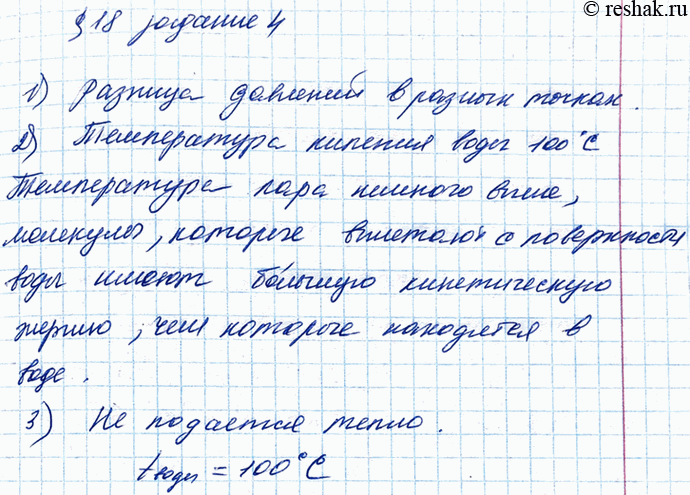 © reshak.ru
§ 18 задание 4
1) Разница давлений в разных точках.
2) Температура кипения воды 100°C
Температура пара немного выше,
молекулы, которые вылетают с поверхности
воды имеют бо́льшую кинетическую
энергию, чем которые находятся в
воде.
3) Не подается тепло.
t воды = 100°C